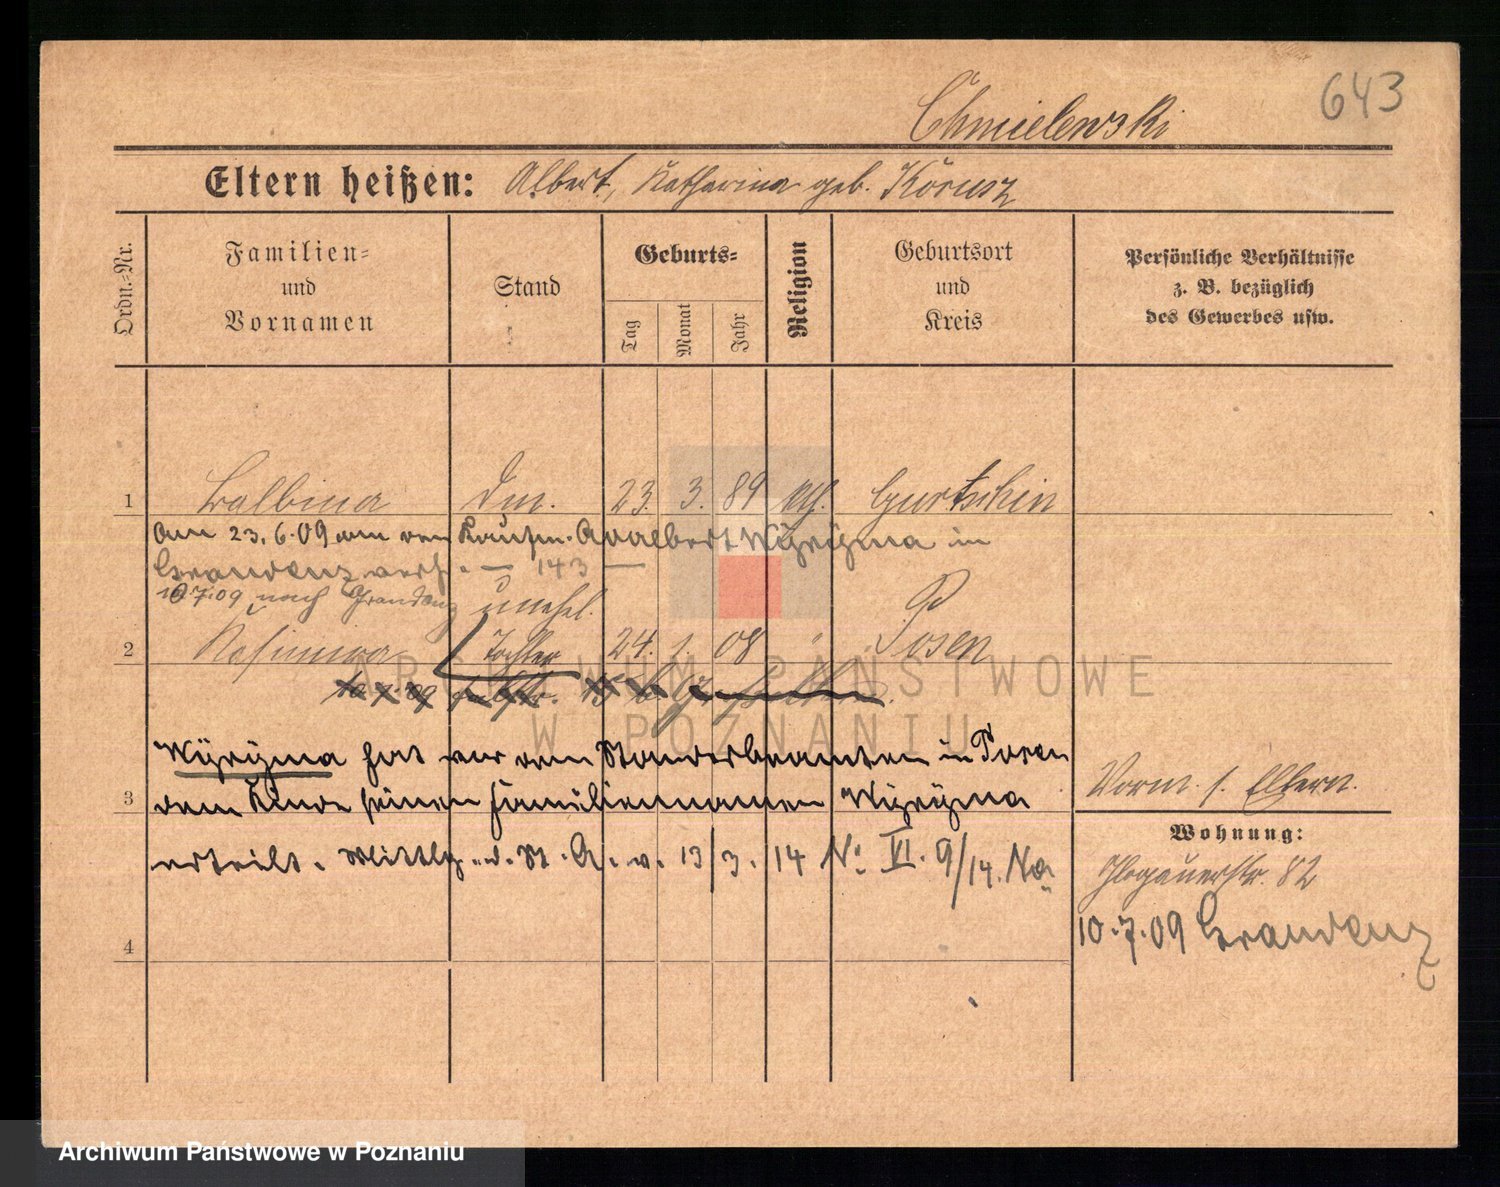 643
Chmielewski
Eltern heißen: Albert, Katharina geb. Körusz
Ordn.-Nr.
Familien-
und
Vornamen
Stand
Geburts-
Tag
Monat
Jahr
Religion
Geburtsort
und
Kreis
Persönliche Verhältnisse
z. B. bezüglich
des Gewerbes usw.
1 Balbina Dm. 23. 3. 89 kth. Gurtschin
Am 23.6.09 an den Kaufm. Adalbert in
Graudenz verh. — 143 —
10.7.09 nach Graudenz
unehel.
2 Tochter 24. 1. 08 " Posen
hat vor dem Standesbeamten in Posen
3 dem Kinde seinen Familiennamen
erteilt. Mittlg. d. St. A. v. 13/3. 14 No VI. 9/14. Na
4
Vorm. s. Eltern.
Wohnung:
Glogauerstr. 82
10.7.09 Graudenz
ARCHIWUM PAŃSTWOWE
W POZNANIU
Archiwum Państwowe w Poznaniu